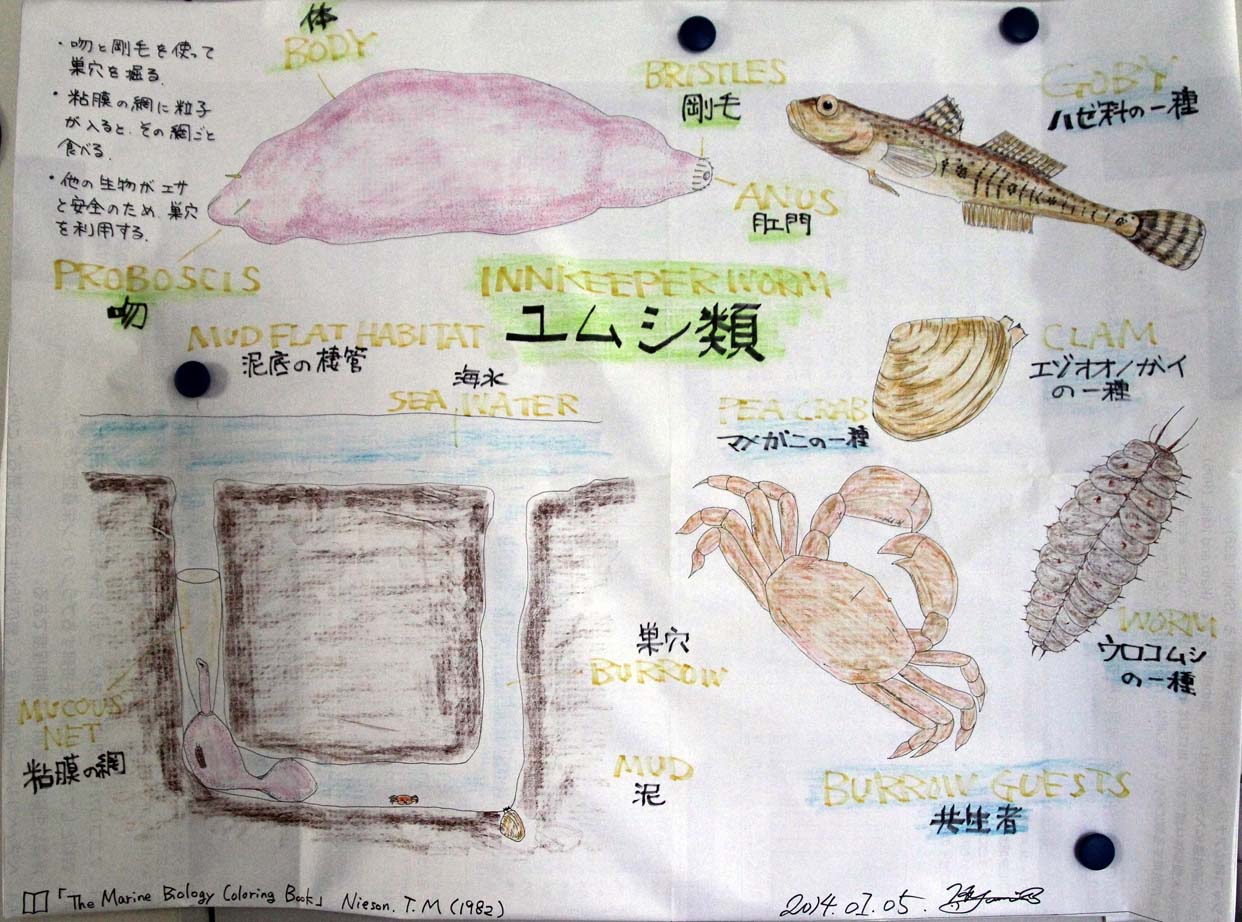 ・吻と剛毛を使って
巣穴を掘る.
・粘膜の網に粒子
が入ると、その網ごと
食べる.
・他の生物がエサ
と安全のため、巣穴
を利用する.
体
BODY
BRISTLES
剛毛
ANUS
肛門
PROBOSCIS
吻
GOBY
ハゼ科の一種
INNKEEPER WORM
ユムシ類
MUD FLAT HABITAT
泥底の棲管
海水
SEA WATER
CLAM
エゾオオノガイ
の一種
PEA CRAB
マメガニの一種
WORM
ウロコムシ
の一種
巣穴
BURROW
MUCOUS
NET
粘膜の網
MUD
泥
BURROW GUESTS
共生者
「The Marine Biology Coloring Book」 Nieson. T. M (1982)
2014.01.05.